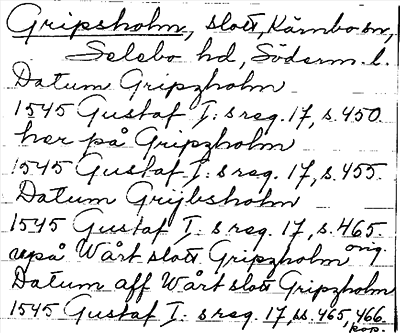 Gripsholm, slott, Kärnbo sn,
Selebo hd, Söderm. l.
Datum Gripzholm
1545 Gustaf I: s reg. 17, s. 450.
her på Gripzholm
1545 Gustaf I: s reg. 17, s. 455.
Datum Grijbsholm
1545 Gustaf I: s reg. 17, s. 465. orig.
upå Wårt slott Gripzholm
Datum aff Wårt slott Gripzholm
1545 Gustaf I: s reg. 17, ss. 465, 466. kop.